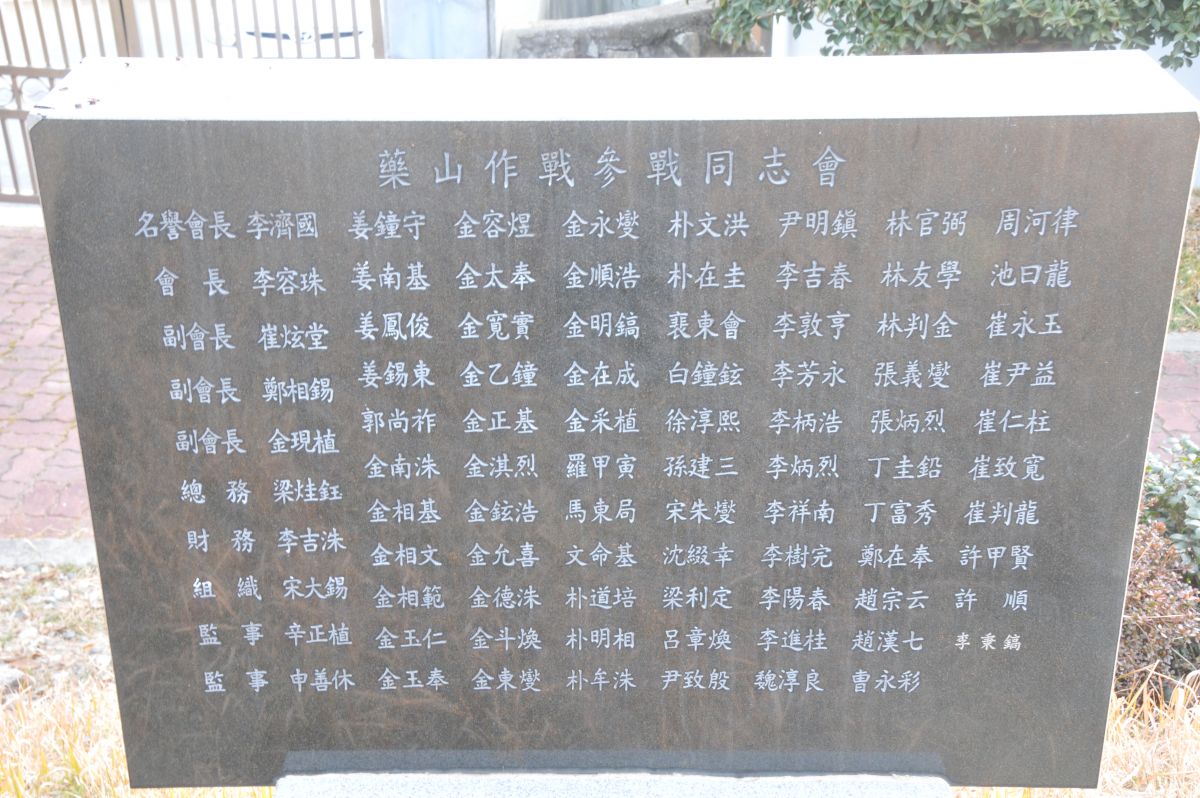 藥山作戰參戰同志會
名譽會長 李濟國 姜鐘守 金容煜 金永燮 朴文洪 尹明鎭 林官弼 周河律
會長 李容珠 姜南基 金太奉 金順浩 朴在圭 李吉春 林友學 池曰龍
副會長 崔炫堂 姜鳳俊 金寬實 金明鎬 裵東會 李敦亨 林判金 崔永玉
副會長 鄭相錫 姜錫東 金乙鐘 金在成 白鐘鉉 李芳永 張義燮 崔尹益
副會長 金現植 郭尚祚 金正基 金采植 徐淳熙 李柄浩 張炳烈 崔仁柱
總務 梁炷鈺 金南洙 金淇烈 羅甲寅 孫建三 李炳烈 丁圭鉛 崔致寬
財務 李吉洙 金相基 金鉉浩 馬東局 宋朱燮 李祥南 丁富秀 崔判龍
組織 宋大錫 金相文 金允喜 文命基 沈綴幸 李樹完 鄭在奉 許甲賢
監事 辛正植 金相範 金德洙 朴道培 梁利定 李陽春 趙宗云 許順
監事 申善休 金玉仁 金斗煥 朴明相 呂章煥 李進桂 趙漢七 李秉鎬
金玉奉 金東燮 朴牟洙 尹致殷 魏淳良 曺永彩